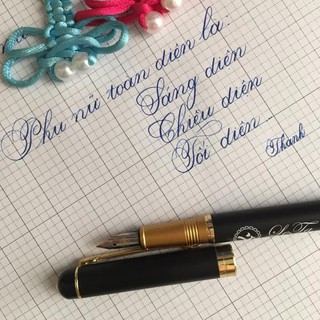 Phụ nữ toàn diện là:
Sáng diện
Chiều diện
Tối diện
Thanh